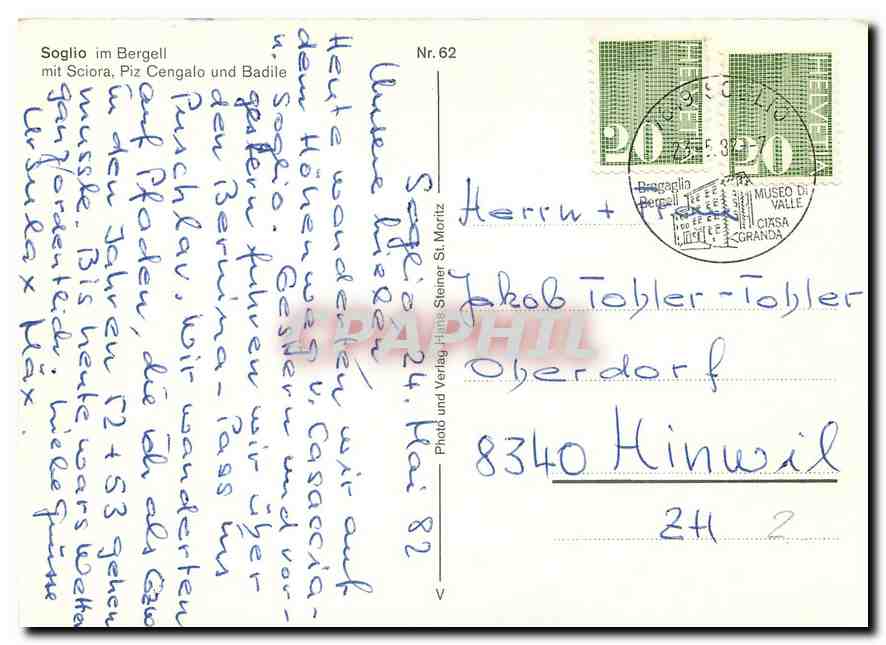 Soglio im Bergell
mit Sciora, Piz Cengalo und Badile
Nr. 62
Soglio, 24. Mai 82
Unsere lieben,
Heute wanderten wir auf
dem Höhenweg v. Casaccia-
n. Soglio. Gestern und vor-
gestern fuhren wir über
den Bernina-Pass ins
Puschlav. Wir wanderten
auf Pfaden, die ich als Gzw
in den Jahren 52 + 53 gehen
musste. Bis heute wars Wetter
ganz ordentlich. Liebe Grüsse
Ursula x Max.
Photo und Verlag Hans Steiner St. Moritz
V
HELVETIA
20
HELVETIA
20
SOGLIO
Bregaglia
Bergell
MUSEO DI
VALLE
CIÄSA
GRANDA
Herrn + Frau
Jakob Tobler-Tobler
Oberdorf
8340 Hinwil
ZH
2
CPAPHIL